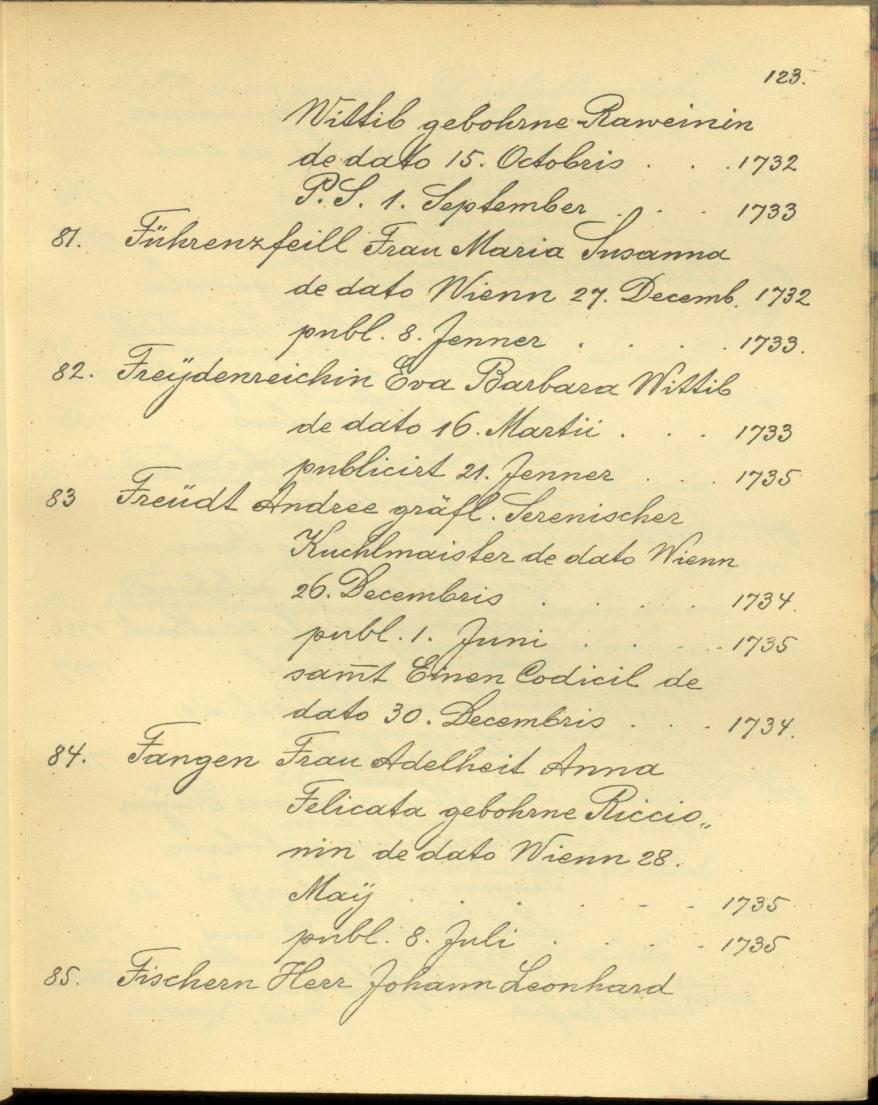 123.
Wittib gebohrne Raweinin
de dato 15. Octobris . . . 1732
P.S. 1. September . . . 1733
81. Führenzfeill Frau Maria Susanna
de dato Wienn 27. Decemb. 1732
publ. 8. Jenner . . . . 1733.
82. Freÿdenreichin Eva Barbara Wittib
de dato 16. Martii . . . 1733
publicirt 21. Jenner . . . 1735
83 Freüdt Andree gräfl. Serenischer
Kuchlmaister de dato Wienn
26. Decembris . . . . . 1734.
publ. 1. Juni . . . . . 1735
sam̄t Einen Codicil de
dato 30. Decembris . . . . 1734.
84. Fangen Frau Adelheit Anna
Felicata gebohrne Riccio„
nin de dato Wienn 28.
Maÿ . . . . . . 1735
publ. 8. Juli . . . . . 1735
85. Fischern Herr Johann Leonhard